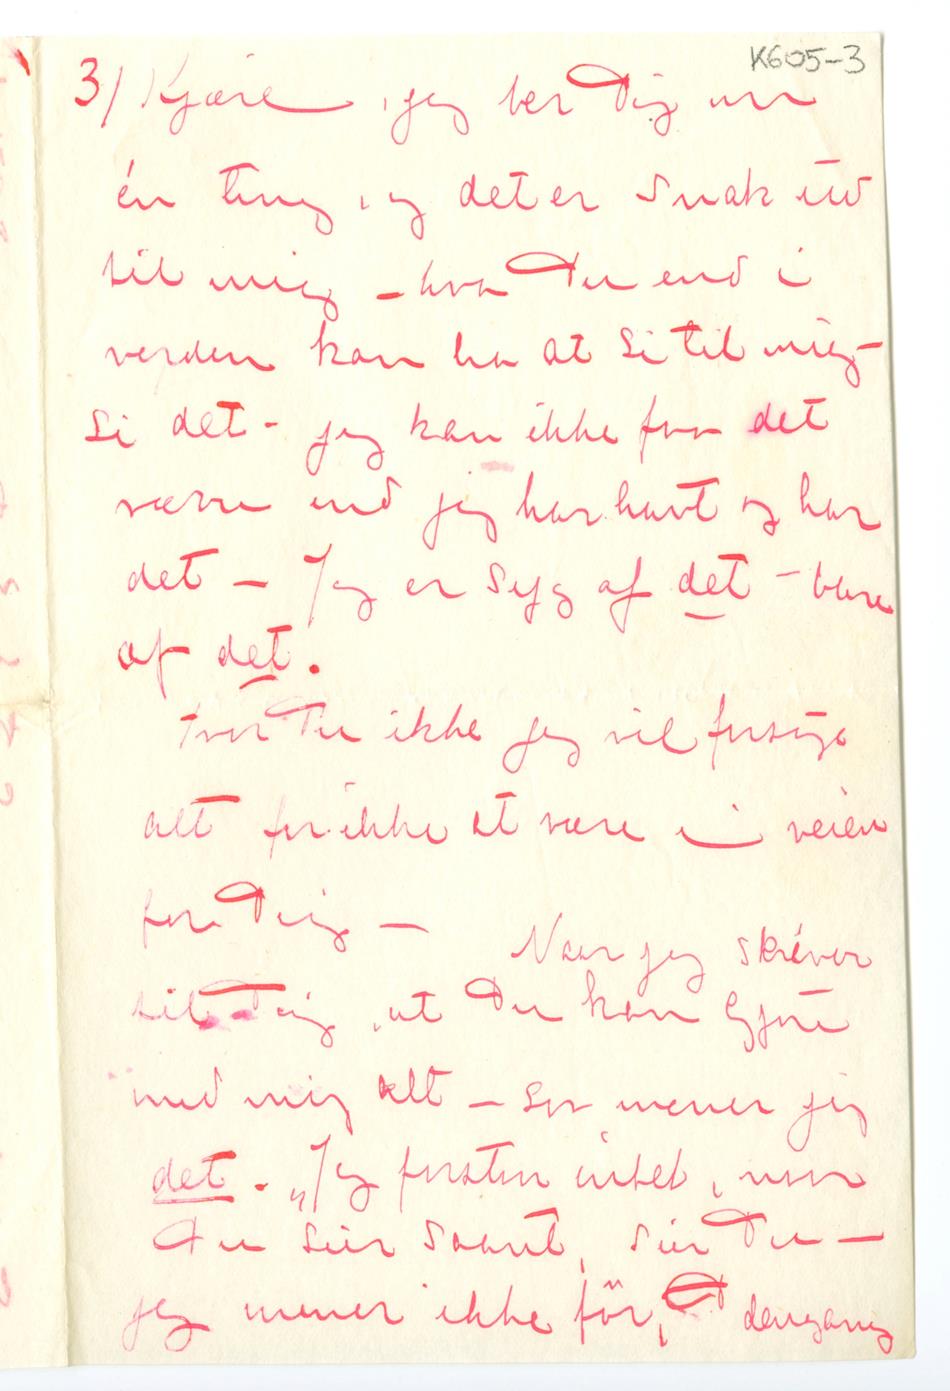 K605-3
3/ Kjære, jeg ber Dig um
én ting, og det er snak ud
til mig – hva Du end i
verden kan ha at si til mig –
si det – jeg kan ikke faa det
værre end jeg har havt og har
det – Jeg er syg af det – bare
af det.
tror Du ikke jeg vil forsøge
alt for ikke at være i veien
for Dig –
Naar jeg skriver
til Dig, at Du kan gjøre
med mig alt – saa mener jeg
det. „Jeg forstår intet, naar
Du sier saant, sier Du –
jeg mener ikke før, dengang